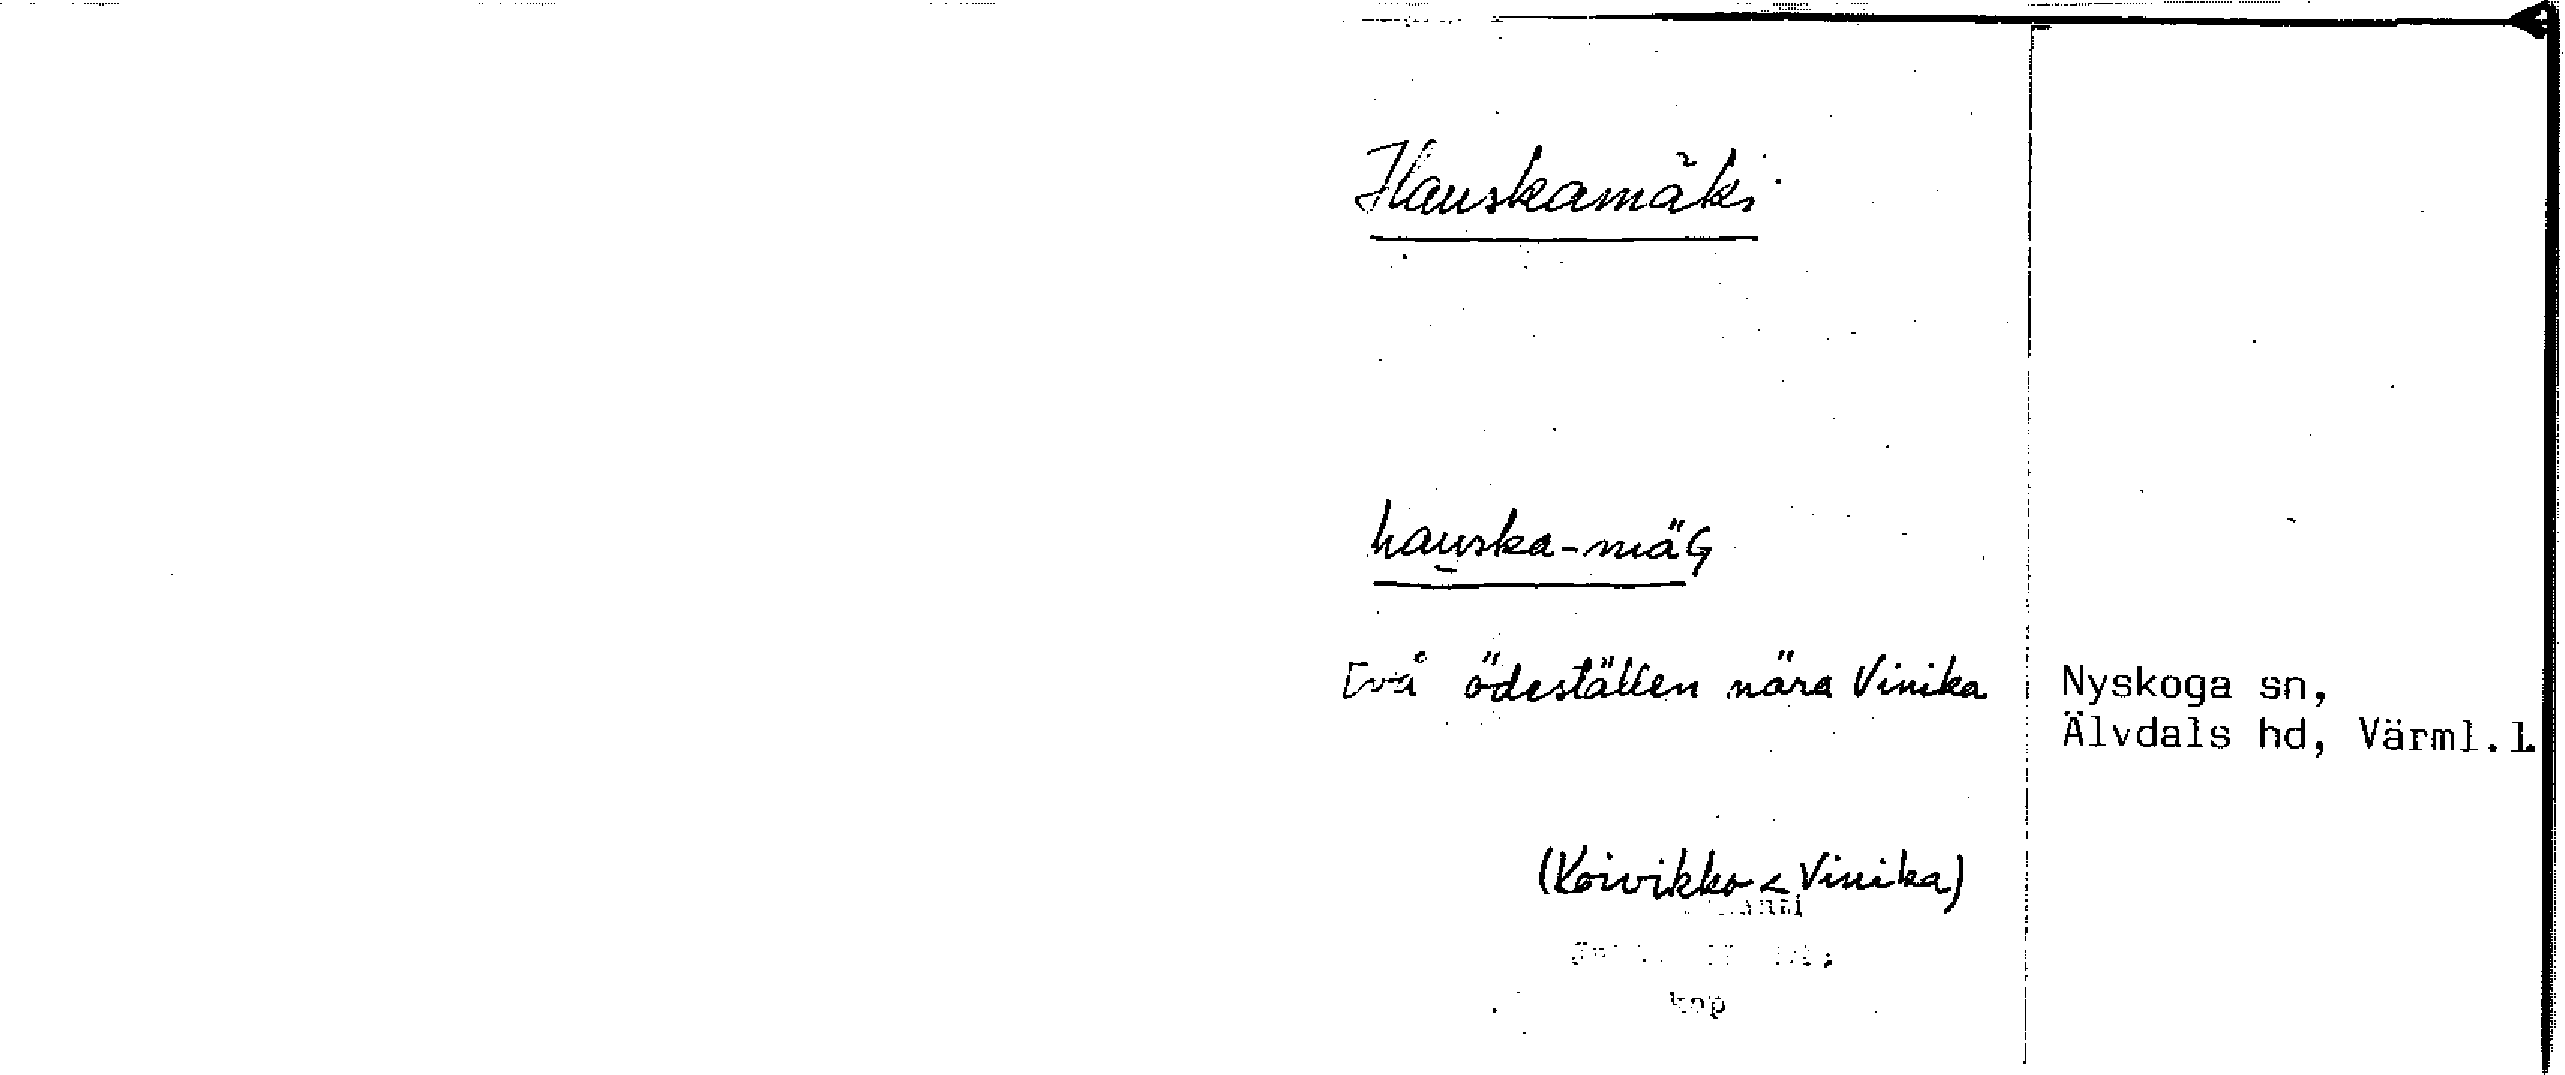 Hauskamäki
hauska-mäG
Två ödeställen nära Vinika
Nyskoga sn,
Älvdals hd, Värml.l.
(Koivikko < Vinika)
kop